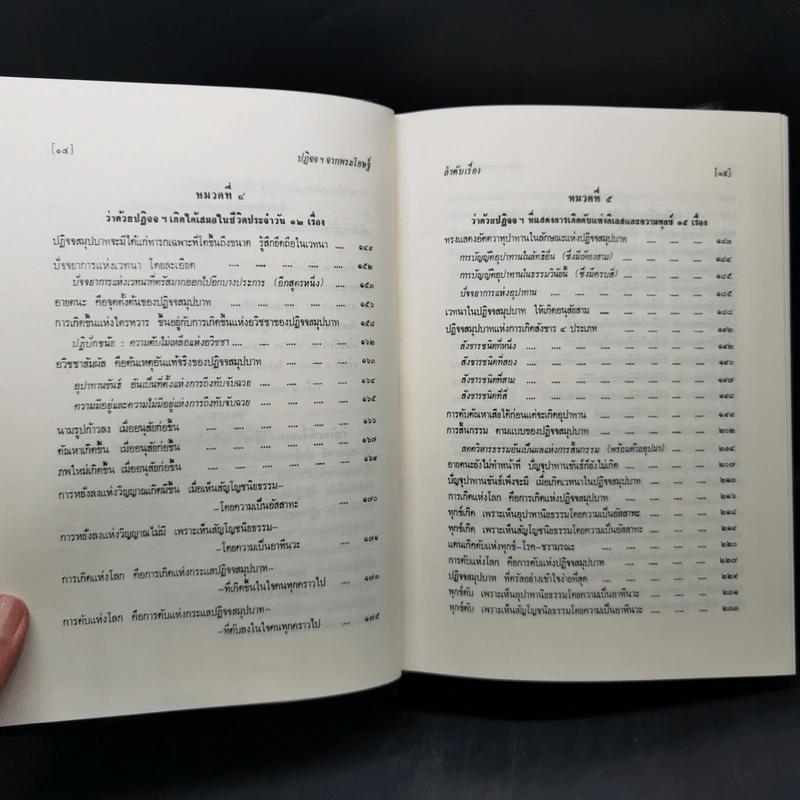 [๑๔] ปฏิจจฯจากพระโอษฐ์
หมวดที่ ๔
ว่าด้วยปฏิจจฯเกิดได้เสมอในชีวิตประจำวัน ๑๒ เรื่อง
ปฏิจจสมุปบาทจะมีได้แก่ทารกเฉพาะที่โตขึ้นถึงขนาด รู้สึกยึดถือในเวทนา .... ๑๔๙
ปัจจยาการแห่งเวทนา โดยละเอียด .... .... .... .... ๑๕๒
ปัจจยาการแห่งเวทนาที่ตรัสมากออกไปอีกบางประการ (อีกสูตรหนึ่ง) .... ๑๕๓
อายตนะ คือจุดตั้งต้นของปฏิจจสมุปบาท .... .... .... ๑๕๖
การเกิดขึ้นแห่งไตรทวาร ขึ้นอยู่กับการเกิดขึ้นแห่งอวิชชาของปฏิจจสมุปบาท .... ๑๕๘
ปฏิปักขนัย : ความดับไม่เหลือแห่งอวิชชา .... .... .... ๑๖๒
อวิชชาสัมผัส คือต้นเหตุอันแท้จริงของปฏิจจสมุปบาท .... .... ๑๖๓
อุปาทานขันธ์ อันเป็นที่ตั้งแห่งการถึงทับจับฉวย .... .... .... ๑๖๔
ความมีอยู่และความไม่มีอยู่แห่งการถึงทับจับฉวย .... .... .... ๑๖๕
นามรูปก้าวลง เมื่ออนุสัยก่อขึ้น .... .... .... .... ๑๖๖
ตัณหาเกิดขึ้น เมื่ออนุสัยก่อขึ้น .... .... .... .... ๑๖๗
ภพใหม่เกิดขึ้น เมื่ออนุสัยก่อขึ้น .... .... .... .... ๑๖๙
การหยั่งลงแห่งวิญญาณเกิดมีขึ้น เมื่อเห็นสัญโญชนิยธรรม-
-โดยความเป็นอัสสาทะ .... .... ๑๗๐
การหยั่งลงแห่งวิญญาณไม่มี เพราะเห็นสัญโญชนิยธรรม-
-โดยความเป็นอาทีนวะ .... .... ๑๗๑
การเกิดแห่งโลก คือการเกิดแห่งกระแสปฏิจจสมุปบาท-
-ที่เกิดขึ้นในใจคนทุกคราวไป .... ๑๗๓
การดับแห่งโลก คือการดับแห่งกระแสปฏิจจสมุปบาท-
-ที่ดับลงในใจคนทุกคราวไป .... ๑๗๕
ลำดับเรื่อง [๑๕]
หมวดที่ ๕
ว่าด้วยปฏิจจฯ ที่แสดงการเกิดดับแห่งกิเลสและความทุกข์ ๑๕ เรื่อง
ทรงแสดงอัตตวาทุปาทานในลักษณะแห่งปฏิจจสมุปบาท .... .... ๑๘๓
การบัญญัติอุปาทานในลัทธิอื่น (ซึ่งมีเพียงสาม) .... .... .... ๑๘๔
การบัญญัติอุปาทานในธรรมวินัยนี้ (ซึ่งมีครบสี่) .... .... .... ๑๘๕
ปัจจยาการแห่งอุปาทาน .... .... .... .... ๑๘๕
เวทนาในปฏิจจสมุปบาท ให้เกิดอนุสัยสาม .... .... .... ๑๘๘
ปฏิจจสมุปบาทแห่งการเกิดสังขาร ๔ ประเภท .... .... .... ๑๙๒
สังขารชนิดที่หนึ่ง .... .... .... .... ๑๙๕
สังขารชนิดที่สอง .... .... .... .... ๑๙๖
สังขารชนิดที่สาม .... .... .... .... ๑๙๗
สังขารชนิดที่สี่ .... .... .... .... ๑๙๘
การดับตัณหาเสียได้ก่อนแต่จะเกิดอุปาทาน .... .... .... ๑๙๙
การสิ้นกรรม ตามแบบของปฏิจจสมุปบาท .... .... .... ๒๐๒
สตตวิหารธรรมอันเป็นผลแห่งการสิ้นกรรม (พร้อมด้วยอุปมา) .... .... ๒๑๔
อายตนะยังไม่ทำหน้าที่ ปัญจุปาทานขันธ์ก็ยังไม่เกิด .... .... ๒๐๗
ปัญจุปาทานขันธ์เพิ่งจะมี เมื่อเกิดเวทนาในปฏิจจสมุปบาท .... .... ๒๑๓
การเกิดแห่งโลก คือการเกิดแห่งปฏิจจสมุปบาท .... .... .... ๒๑๖
ทุกข์เกิด เพราะเห็นอุปาทานิยธรรมโดยความเป็นอัสสาทะ .... .... ๒๑๘
ทุกข์เกิด เพราะเห็นสัญโญชนิยธรรมโดยความเป็นอัสสาทะ .... .... ๒๑๙
แดนเกิดดับแห่งทุกข์-โรค-ชรามรณะ .... .... .... ๒๒๐
การดับแห่งโลก คือการดับแห่งปฏิจจสมุปบาท .... .... .... ๒๒๓
ปฏิจจสมุปบาท ที่ตรัสอย่างเข้าใจง่ายที่สุด .... .... .... ๒๒๙
ทุกข์ดับ เพราะเห็นอุปาทานิยธรรมโดยความเป็นอาทีนวะ .... .... ๒๓๑
ทุกข์ดับ เพราะเห็นสัญโญชนิยธรรมโดยความเป็นอาทีนวะ .... .... ๒๓๓